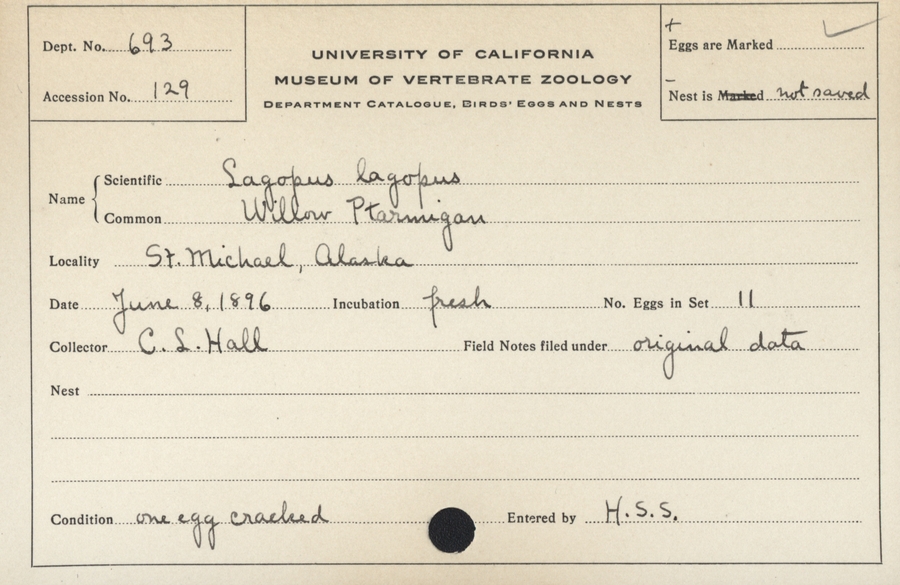 Dept. No. 693
Accession No. 129
UNIVERSITY OF CALIFORNIA
MUSEUM OF VERTEBRATE ZOOLOGY
DEPARTMENT CATALOGUE, BIRDS' EGGS AND NESTS
+
Eggs are Marked ✓
–
Nest is Marked not saved
Name { Scientific Lagopus lagopus
Common Willow Ptarmigan
Locality St. Michael, Alaska
Date June 8, 1896 Incubation fresh No. Eggs in Set 11
Collector C. L. Hall Field Notes filed under original data
Nest
Condition one egg cracked Entered by H.S.S.